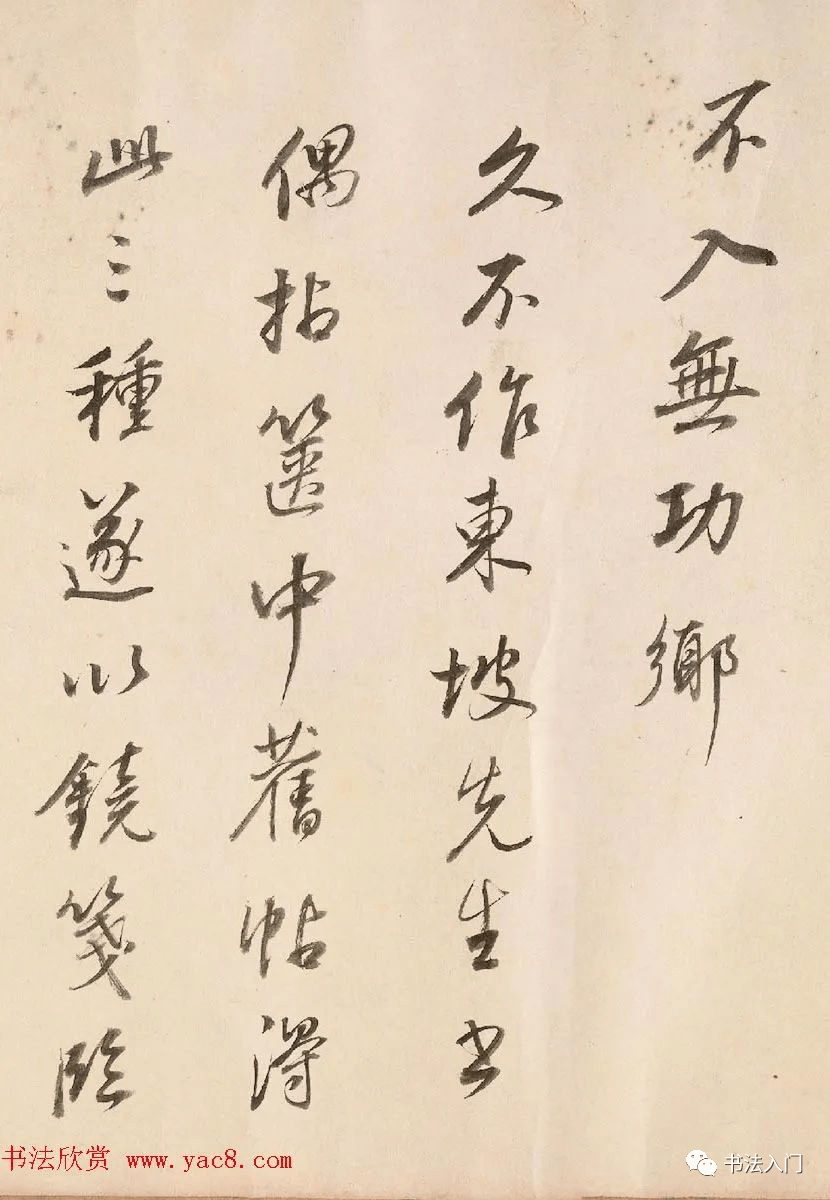 不入無功鄉
久不作東坡先生書
偶拈篋中舊帖得
此三種遂以鏡箋臨
书法欣赏 www.yac8.com
书法入门